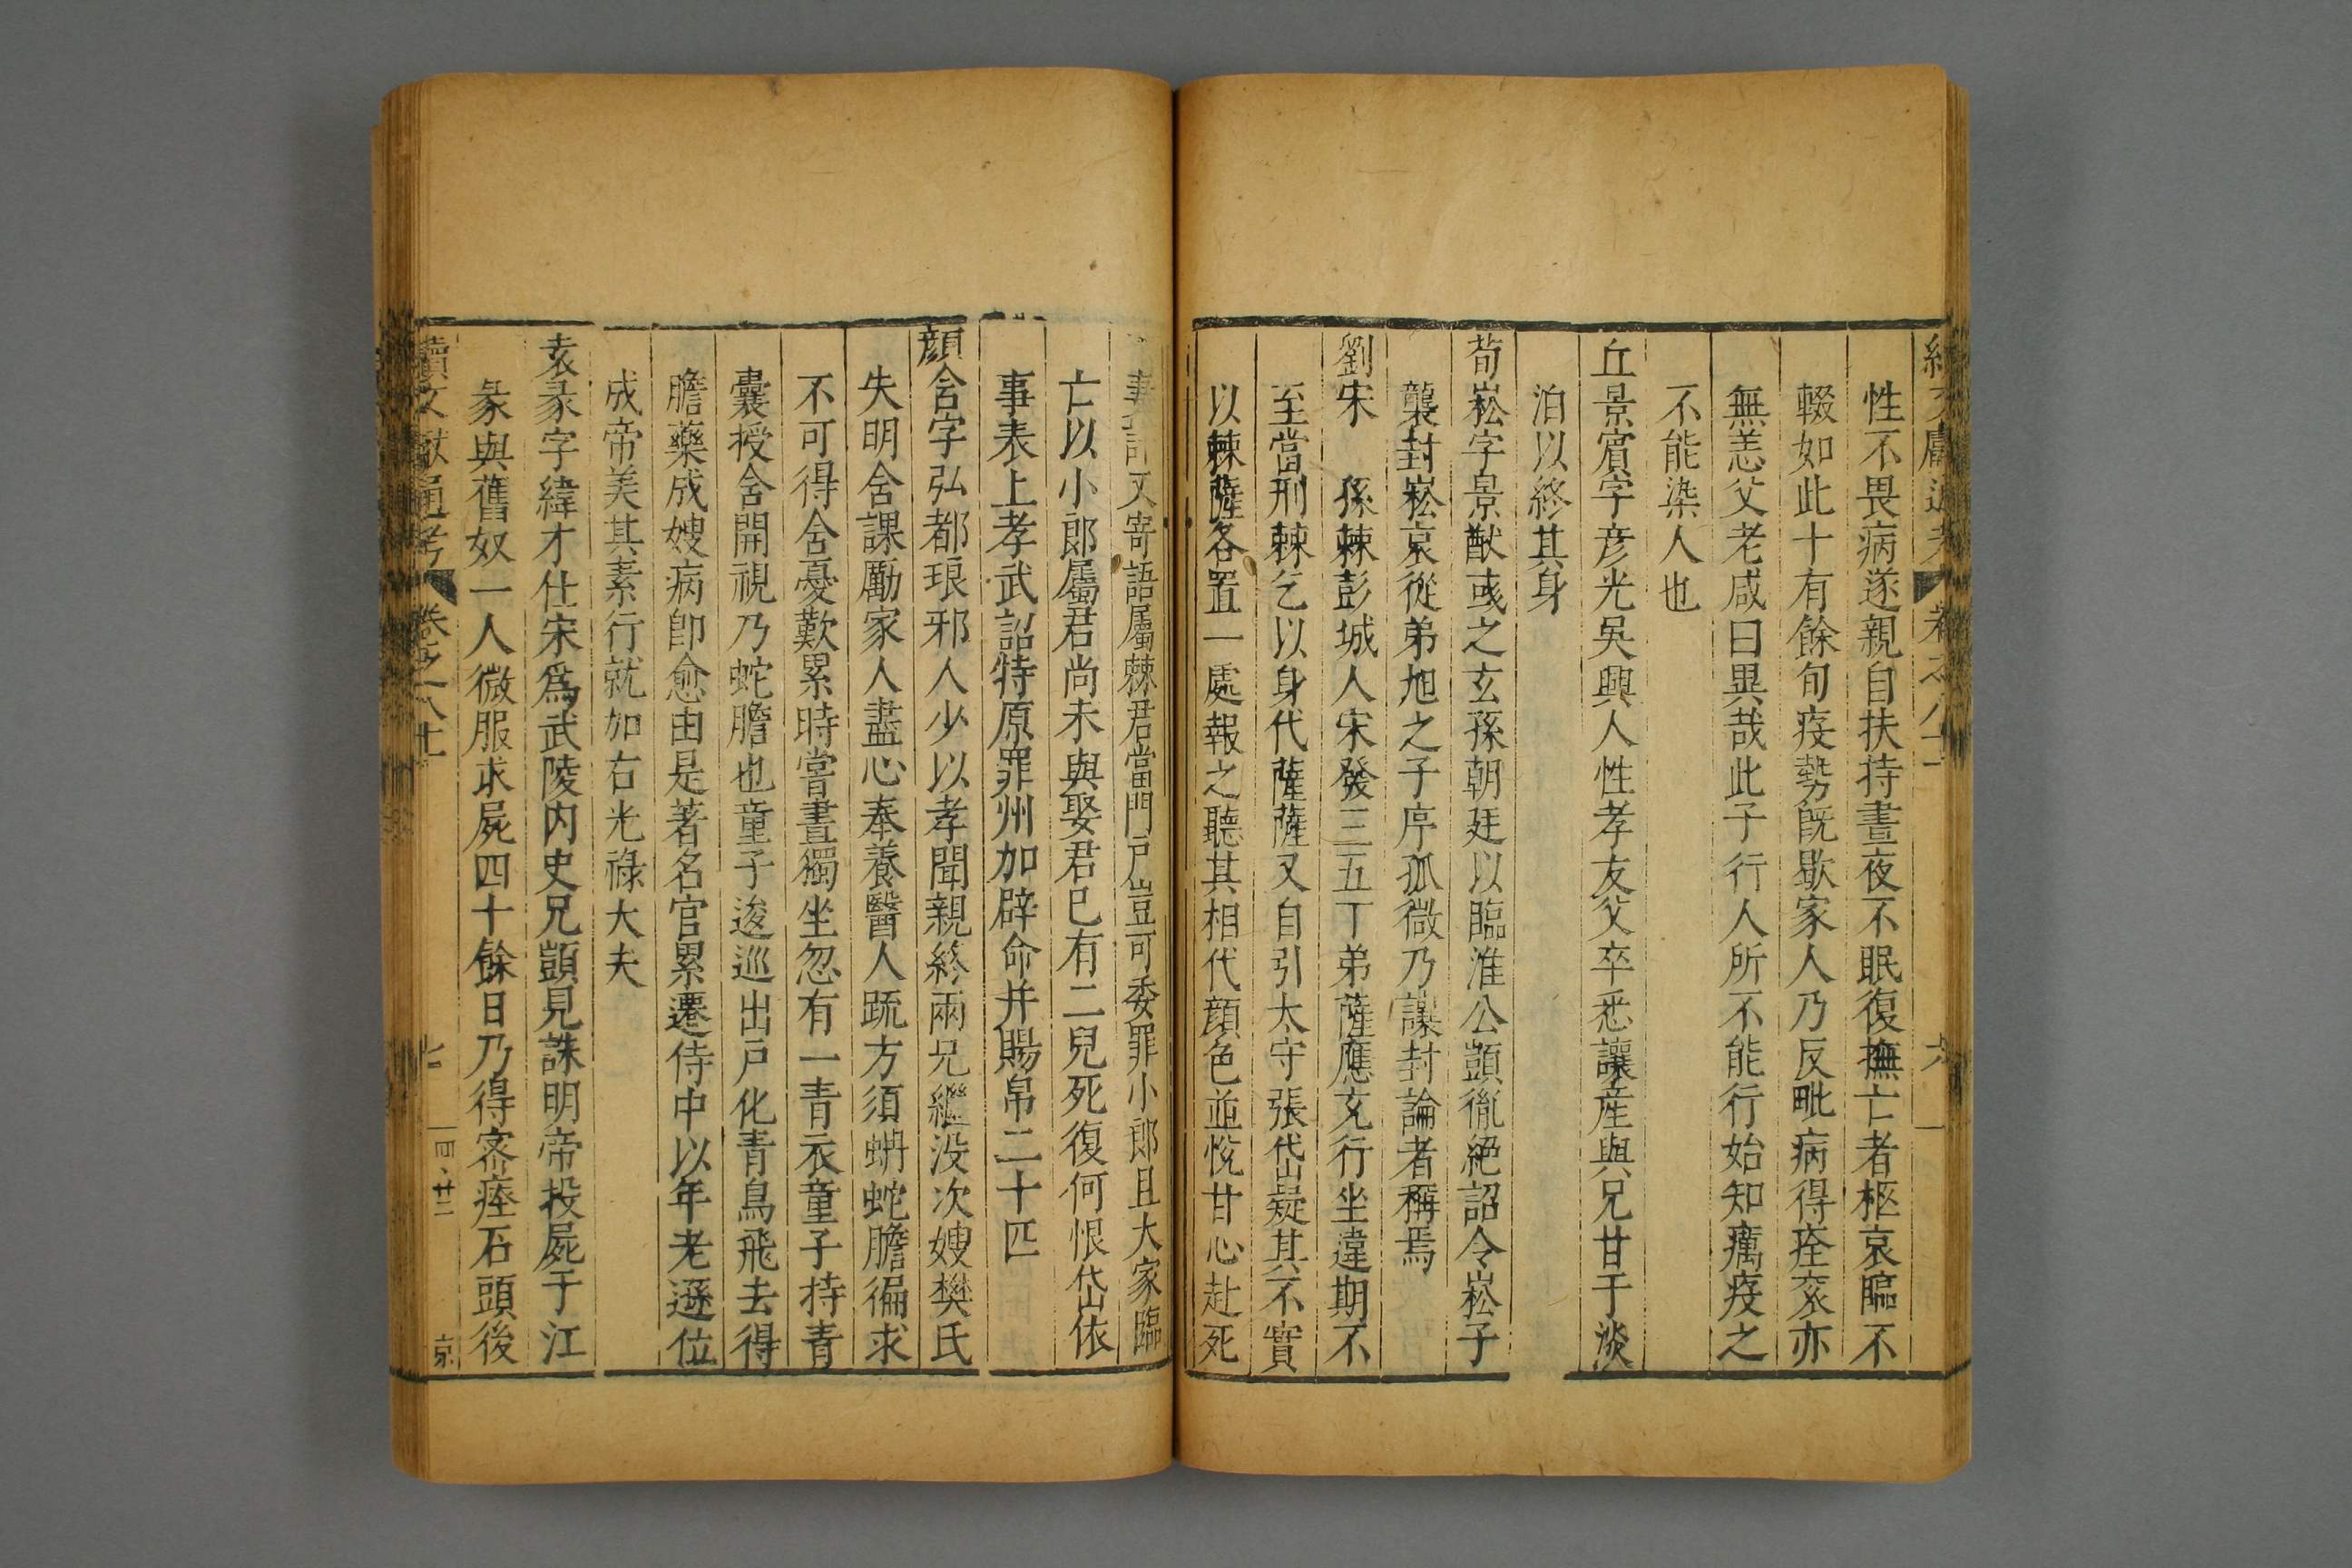 續文獻通考 卷之八十一 六
性不畏病遂親自扶持晝夜不眠復撫亡者柩哀臨不
輟如此十有餘旬疫勢旣歇家人乃反毗病得痊袞亦
無恙父老咸曰異哉此子行人所不能行始知癘疫之
不能染人也
丘景賔字彦光吳興人性孝友父卒悉讓産與兄甘于淡
泊以終其身
荀崧字景猷彧之玄孫朝廷以臨淮公顗胤絕詔令崧子
襲封崧哀從弟旭之子序孤微乃讓封論者稱焉
劉宋 孫棘彭城人宋發三五丁弟薩應充行坐違期不
至當刑棘乞以身代薩薩又自引太守張岱疑其不實
以棘薩各置一處報之聽其相代顔色並悅甘心赴死
棘妻許又寄語屬棘君當門戸豈可委罪小郎且大家臨
亡以小郎屬君尚未與娶君已有二兒死復何恨岱依
事表上孝武詔特原罪州加辟命并賜帛二十匹
顔含字弘都琅邪人少以孝聞親終兩兄繼没次嫂樊氏
失明含課勵家人盡心奉養醫人䟽方須蚺蛇膽徧求
不可得含憂歎累時嘗晝獨坐忽有一青衣童子持青
囊授含開視乃蛇膽也童子逡巡出戸化青鳥飛去得
膽藥成嫂病卽愈由是著名官累遷侍中以年老遜位
成帝美其素行就加右光祿大夫
袁彖字緯才仕宋爲武陵内史兄顗見誅明帝投屍于江
彖與舊奴一人微服求屍四十餘日乃得宻瘞石頭後
續文獻通考 卷之八十一 七